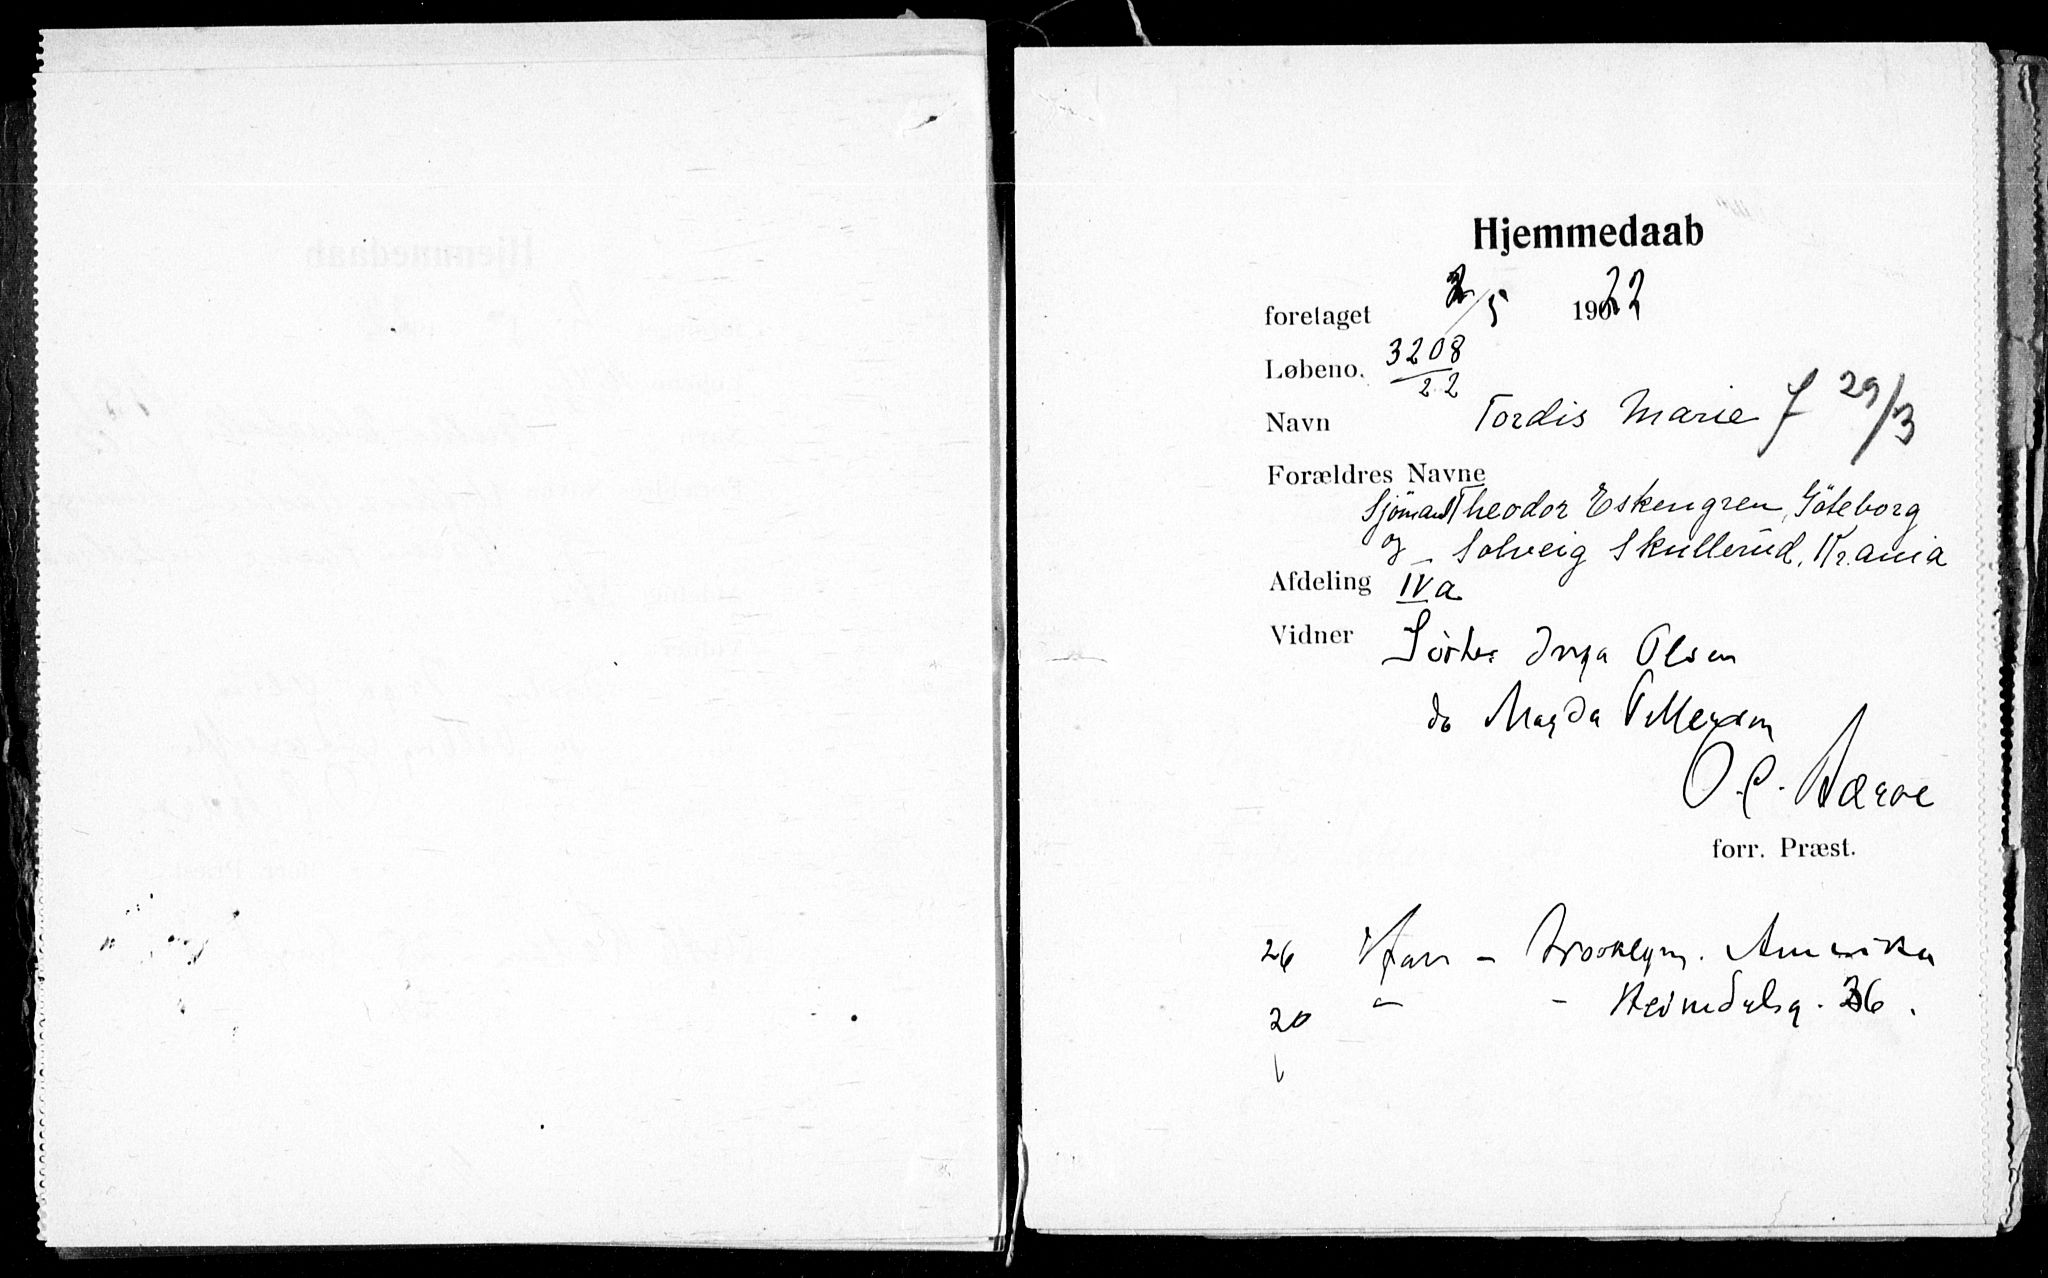 Hjemmedaab
foretaget 2/5 1922
Løbeno. 3208/22
Navn Tordis Marie f 29/3
Forældres Navne
Sjömand Theodor Eskengren, Göteborg
og Solveig Skullerud, Kr.ania
Afdeling IVa
Vidner Søster Inga Olsen
do Magda Pettersen
O. C.
forr. Præst.
26 - Brooklyn. Amerika
20 " - 36.